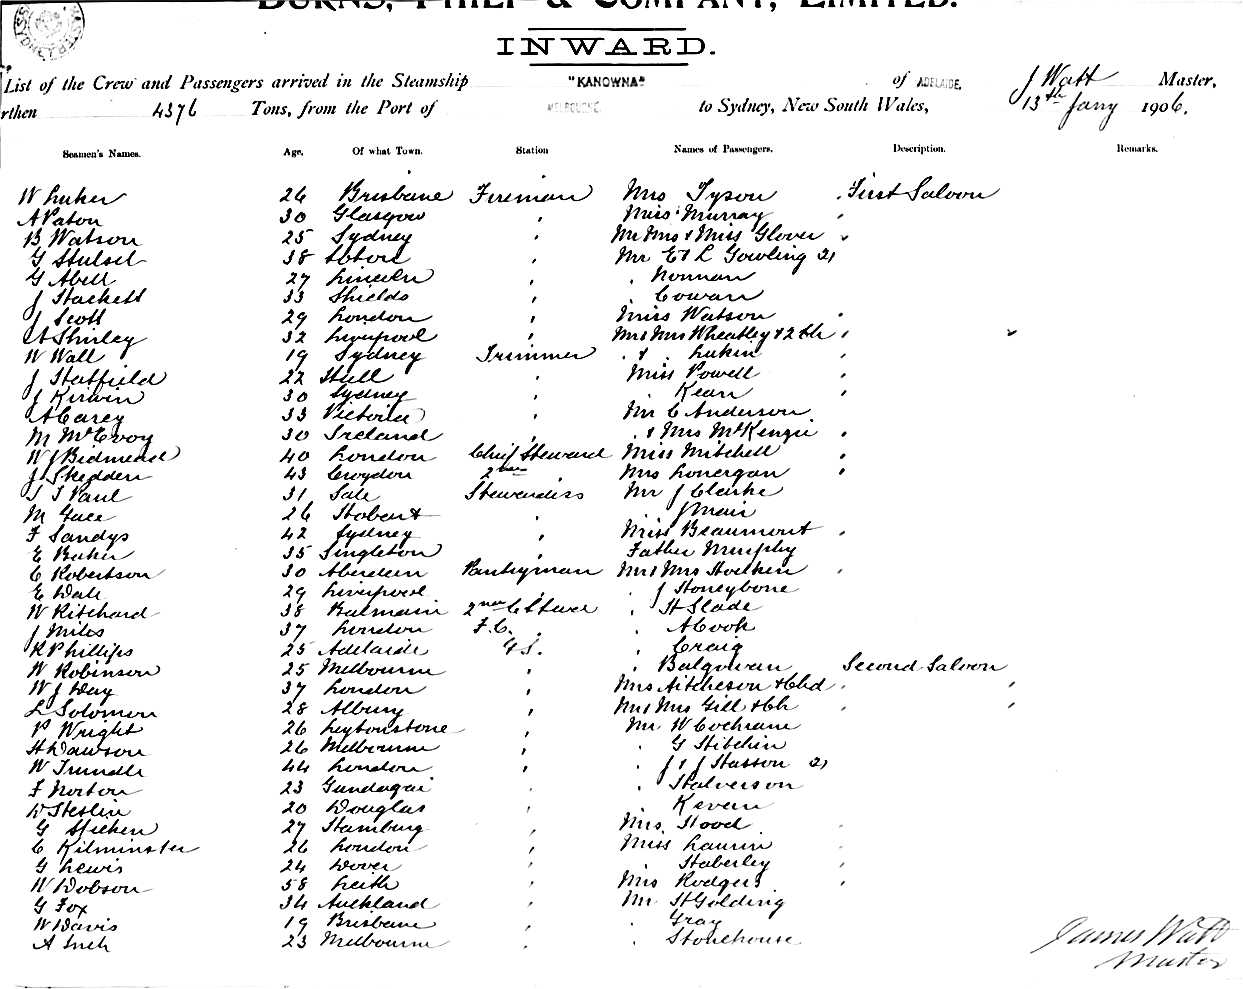 BURNS, PHILP & COMPANY, LIMITED.
INWARD.
List of the Crew and Passengers arrived in the Steamship "KANOWNA" of ADELAIDE, J Watt Master,
rthen 4376 Tons, from the Port of MELBOURNE to Sydney, New South Wales, 13th Jany 1906.
Seamen's Names. Age. Of what Town. Station Names of Passengers. Description. Remarks.
W Luker 26 Brisbane Fireman Mrs Tyson First Saloon
A Paton 30 Glasgow Miss Murray
B Watson 25 Sydney Mr Mrs & Miss Glover
G 38 Mr E & L Gowling 2
G Abell 27 Lincoln Norman
J Hackett 33 Shields Cowan
J Scott 29 London Miss Watson
A Shirley 32 Liverpool Mr & Mrs Wheatley & 2 Ch
W Wall 19 Sydney Trimmer & Lukin
J Hatfield 22 Hull Miss Powell
J Kirwin 30 Sydney Kean
A Carey 33 Victoria Mr C Anderson
M McEvoy 30 Ireland & Mrs McKenzie
W J Bidmead 40 London Chief Steward Miss Mitchell
J Skedden 43 Croydon 2nd Mrs Lonergan
J Paul 31 Sale Stewardess Mr J Clarke
M 26 Hobart J Mair
F Sandys 42 Sydney Miss Beaumont
E Baker 35 Singleton Father Murphy
C Robertson 30 Aberdeen Pantryman Mr & Mrs Hocken
E Dale 29 Liverpool J Honeybone
W Ritchard 38 Balmain 2nd H Slade
J Miles 37 London F.C. A Cook
R Phillips 25 Adelaide G.S. Craig
W Robinson 25 Melbourne Balgowan Second Saloon
W J Day 37 London Mrs Aitcheson & Chd
L Solomon 28 Albury Mr & Mrs Gill & Ch
P Wright 26 Leytonstone Mr W Cochrane
H Dawson 26 Melbourne G Hitchin
W Trundle 44 London J & J Hasson 2
F Norton 23 Gundagai Halverson
D Heslin 20 Douglas Keven
G 27 Hamburg Mrs Hood
C Kilminster 26 London Miss Laurin
G Lewis 24 Dover Haberley
W Dobson 58 Leith Mrs Rodgers
G Fox 34 Auckland Mr H Golding
W Davis 19 Brisbane Gray
A Inch 23 Melbourne Stonehouse
James Watt
Master